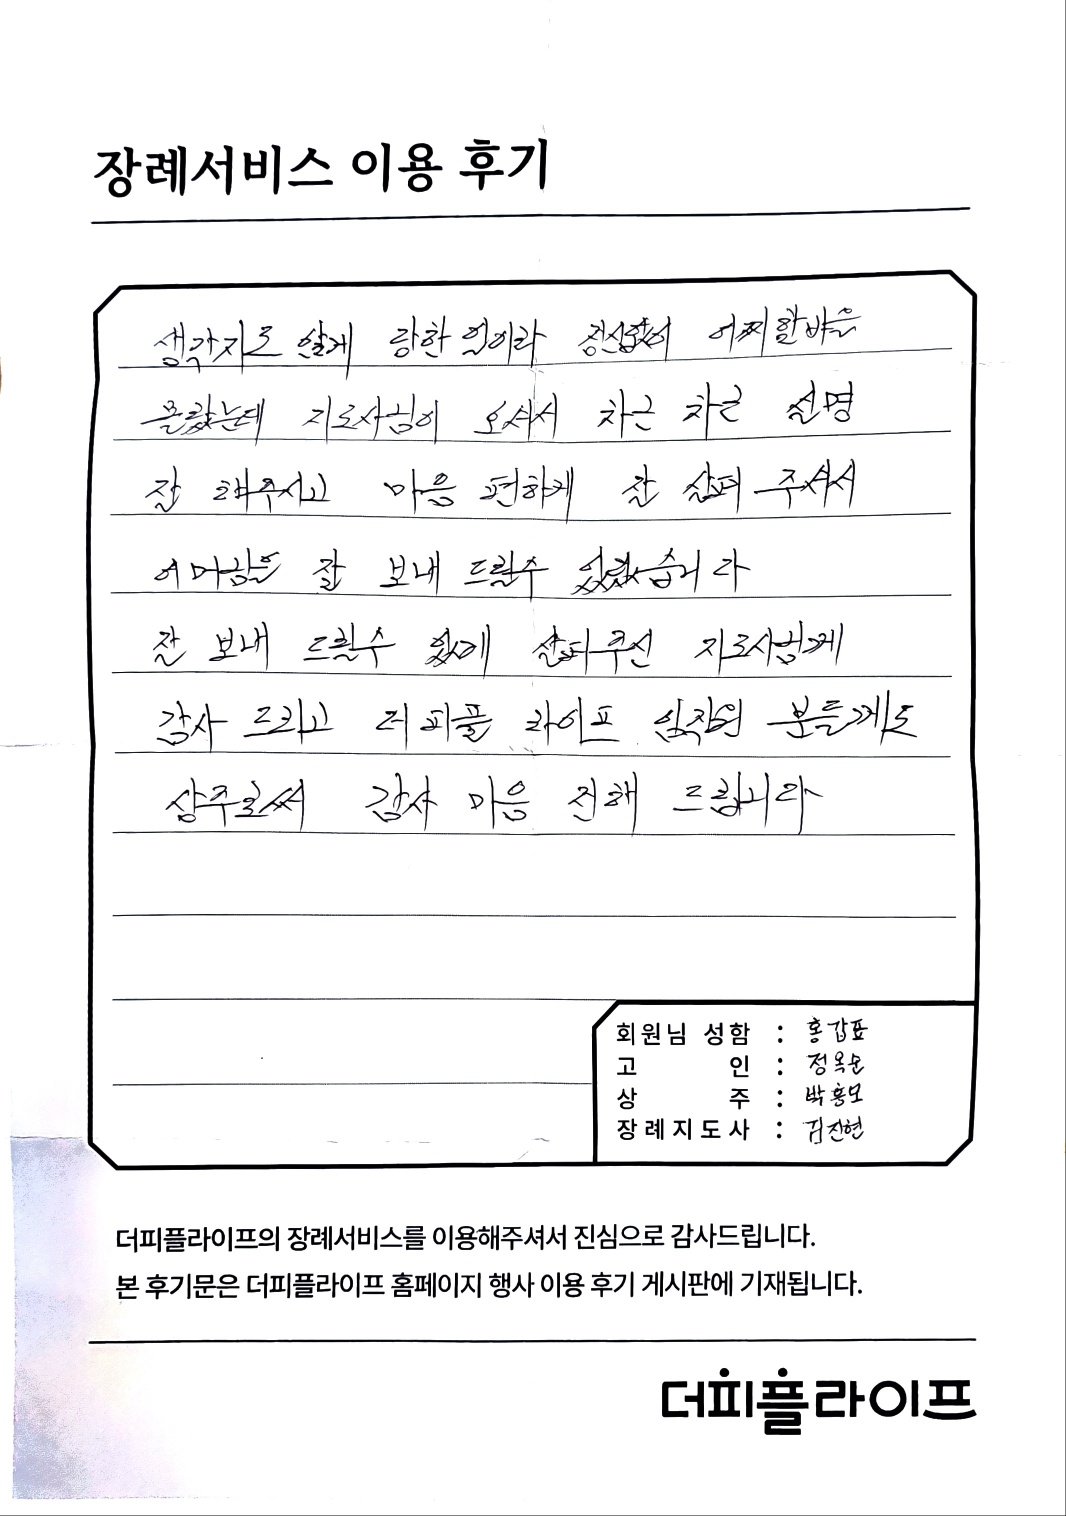 장례서비스 이용 후기
생각지도 않게 당한 일이라 정신없이 어찌할바을
몰랐는데 지도사님이 오셔서 차근 차근 설명
잘 해주시고 마음 편하게 잘 살펴 주셔서
어머님을 잘 보내 드릴수 있었습니다
잘 보내 드릴수 있게 살펴주신 지도사님게
감사 드리고 더 피플 라이프 임직원 분들게도
상주로써 감사 마음 전해 드립니다
회원님 성함 : 홍갑표
고 인 : 정옥순
상 주 : 박홍모
장례지도사 : 김진현
더피플라이프의 장례서비스를 이용해주셔서 진심으로 감사드립니다.
본 후기문은 더피플라이프 홈페이지 행사 이용 후기 게시판에 기재됩니다.
더피플라이프